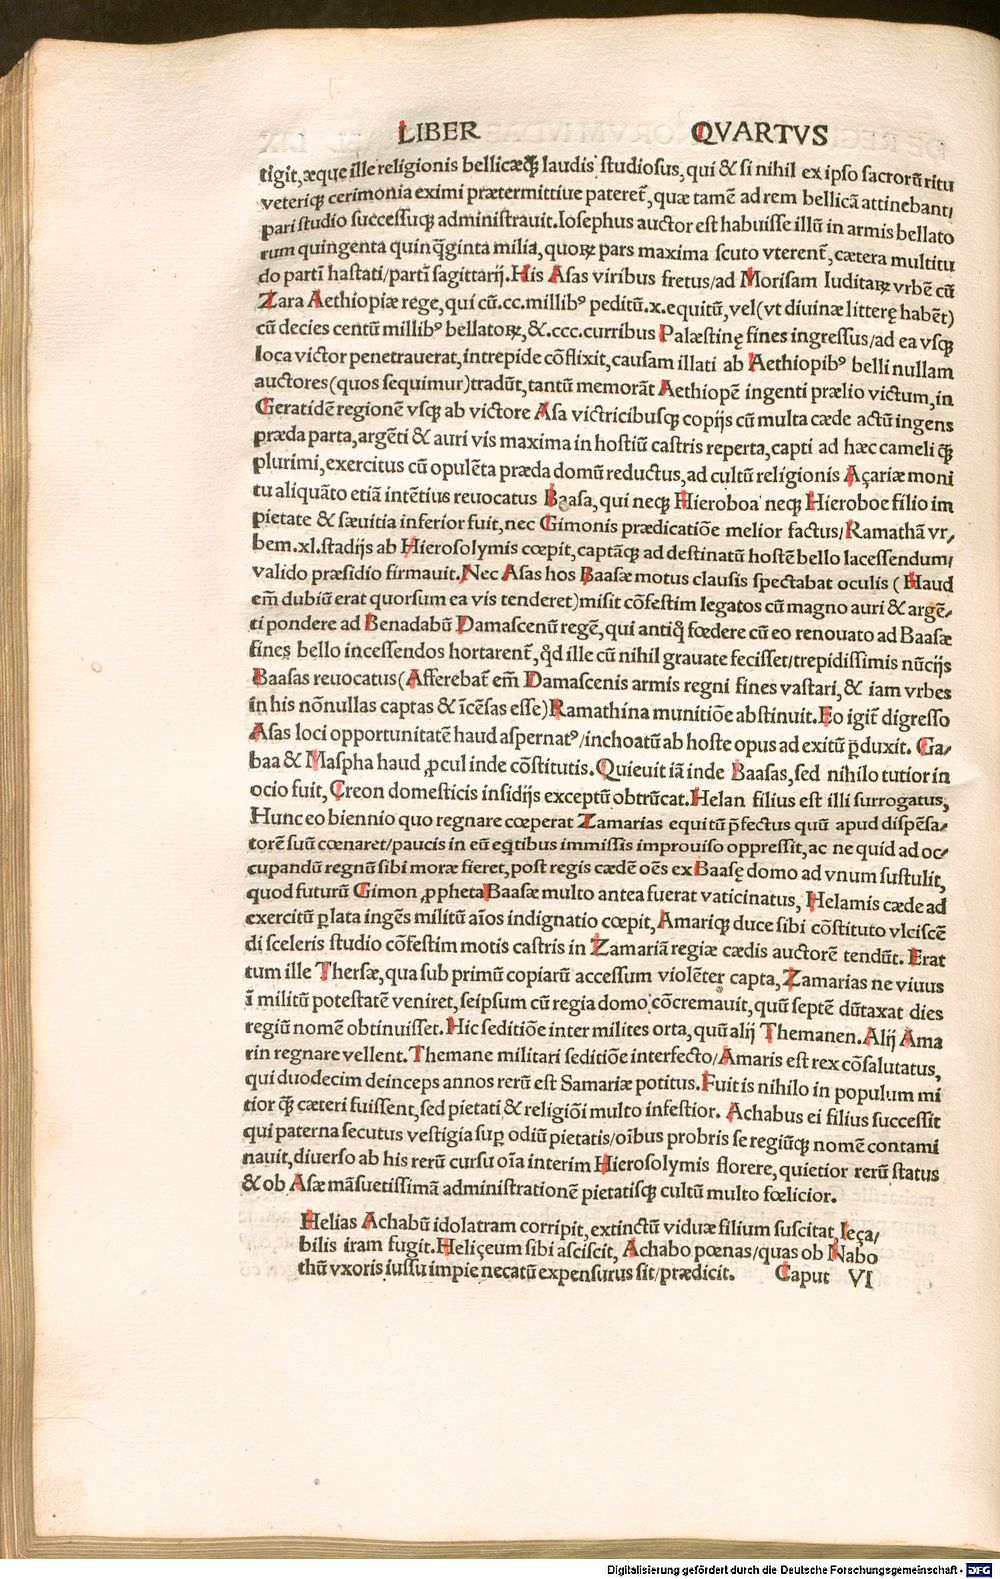 LIBER QVARTVS
tigit, æque ille religionis bellicæq́ꝫ laudis studiosus, qui & si nihil ex ipso sacrorū ritu
veteriqꝫ cerimonia eximi prætermittiue pateret̃, quæ tamē ad rem bellicā attinebant/
pari studio successuqꝫ administrauit. Iosephus auctor est habuisse illū in armis bellato
rum quingenta quinq̃ginta milia, quoꝝ pars maxima scuto vterent̃, cætera multitu
do partī hastati/partī sagittarij. His Asas viribus fretus/ad Morisam Iuditaꝝ vrbē cū
Zara Aethiopiæ rege, qui cū.cc.millibꝰ peditū.x.equitū, vel(vt diuinæ litterę habēt)
cū decies centū millibꝰ bellatoꝝ, &.ccc.curribus Palæstinę fines ingressus/ad ea vsqꝫ
loca victor penetrauerat, intrepide cōflixit, causam illati ab Aethiopibꝰ belli nullam
auctores(quos sequimur)tradūt, tantū memorāt Aethiopē ingenti prælio victum, in
Geratidē regionē vsqꝫ ab victore Asa victricibusqꝫ copijs cū multa cæde actū ingens
præda parta, argēti & auri vis maxima in hostiū castris reperta, capti ad hæc cameli q̃ꝫ
plurimi, exercitus cū opulēta præda domū reductus, ad cultū religionis Açariæ moni
tu aliquāto etiā intētius reuocatus Baasa, qui neqꝫ Hieroboa neqꝫ Hieroboe filio im
pietate & sæuitia inferior fuit, nec Gimonis prædicatiōe melior factus/Ramathā vr/
bem.xl.stadijs ab Hierosolymis cœpit, captāqꝫ ad destinatū hostē bello lacessendum/
valido præsidio firmauit. Nec Asas hos Baasæ motus clausis spectabat oculis ( Haud
em̃ dubiū erat quorsum ea vis tenderet)misit cōfestim legatos cū magno auri & argē/
ti pondere ad Benadabū Damascenū regē, qui antiq̃ fœdere cū eo renouato ad Baasæ
fines bello incessendos hortarent̃, q̃d ille cū nihil grauate fecisset/trepidissimis nūcijs
Baasas reuocatus(Afferebat̃ em̃ Damascenis armis regni fines vastari, & iam vrbes
in his nōnullas captas & īcēsas esse)Ramathina munitiōe abstinuit. Eo igit̃ digresso
Asas loci opportunitatē haud aspernatꝰ/inchoatū ab hoste opus ad exitū ꝑduxit. Ga/
baa & Maspha haud ꝓcul inde cōstitutis. Quieuit iā inde Baasas, sed nihilo tutior in
ocio fuit, Creon domesticis insidijs exceptū obtrūcat. Helan filius est illi surrogatus,
Hunc eo biennio quo regnare cœperat Zamarias equitū p̃fectus quū apud dispēsa/
torē suū cœnaret/paucis in eū eq̃tibus immissis improuiso oppressit, ac ne quid ad oc/
cupandū regnū sibi moræ fieret, post regis cædē oēs ex Baasę domo ad vnum sustulit,
quod futurū Gimon ꝓpheta Baasæ multo antea fuerat vaticinatus, Helamis cæde ad
exercitū ꝑlata ingēs militū aīos indignatio cœpit, Amariqꝫ duce sibi cōstituto vlciscē
di sceleris studio cōfestim motis castris in Zamariā regiæ cædis auctorē tendūt. Erat
tum ille Thersæ, qua sub primū copiarū accessum violēter capta, Zamarias ne viuus
ī militū potestatē veniret, seipsum cū regia domo cōcremauit, quū septē dūtaxat dies
regiū nomē obtinuisset. Hic seditiōe inter milites orta, quū alij Themanen. Alij Ama
rin regnare vellent. Themane militari seditiōe interfecto/Amaris est rex cōsalutatus,
qui duodecim deinceps annos rerū est Samariæ potitus. Fuit is nihilo in populum mi
tior q̃ꝫ cæteri fuissent, sed pietati & religiōi multo infestior. Achabus ei filius successit
qui paterna secutus vestigia suꝑ odiū pietatis/oībus probris se regiūqꝫ nomē contami
nauit, diuerso ab his rerū cursu oīa interim Hierosolymis florere, quietior rerū status
& ob Asæ māsuetissimā administrationē pietatisqꝫ cultū multo fœlicior.
Helias Achabū idolatram corripit, extinctū viduæ filium suscitat, Ieça/
bilis iram fugit. Heliçeum sibi asciscit, Achabo pœnas/quas ob Nabo
thū vxoris iussu impie necatū expensurus sit/prædicit. Caput VI
Digitalisierung gefördert durch die Deutsche Forschungsgemeinschaft - DFG